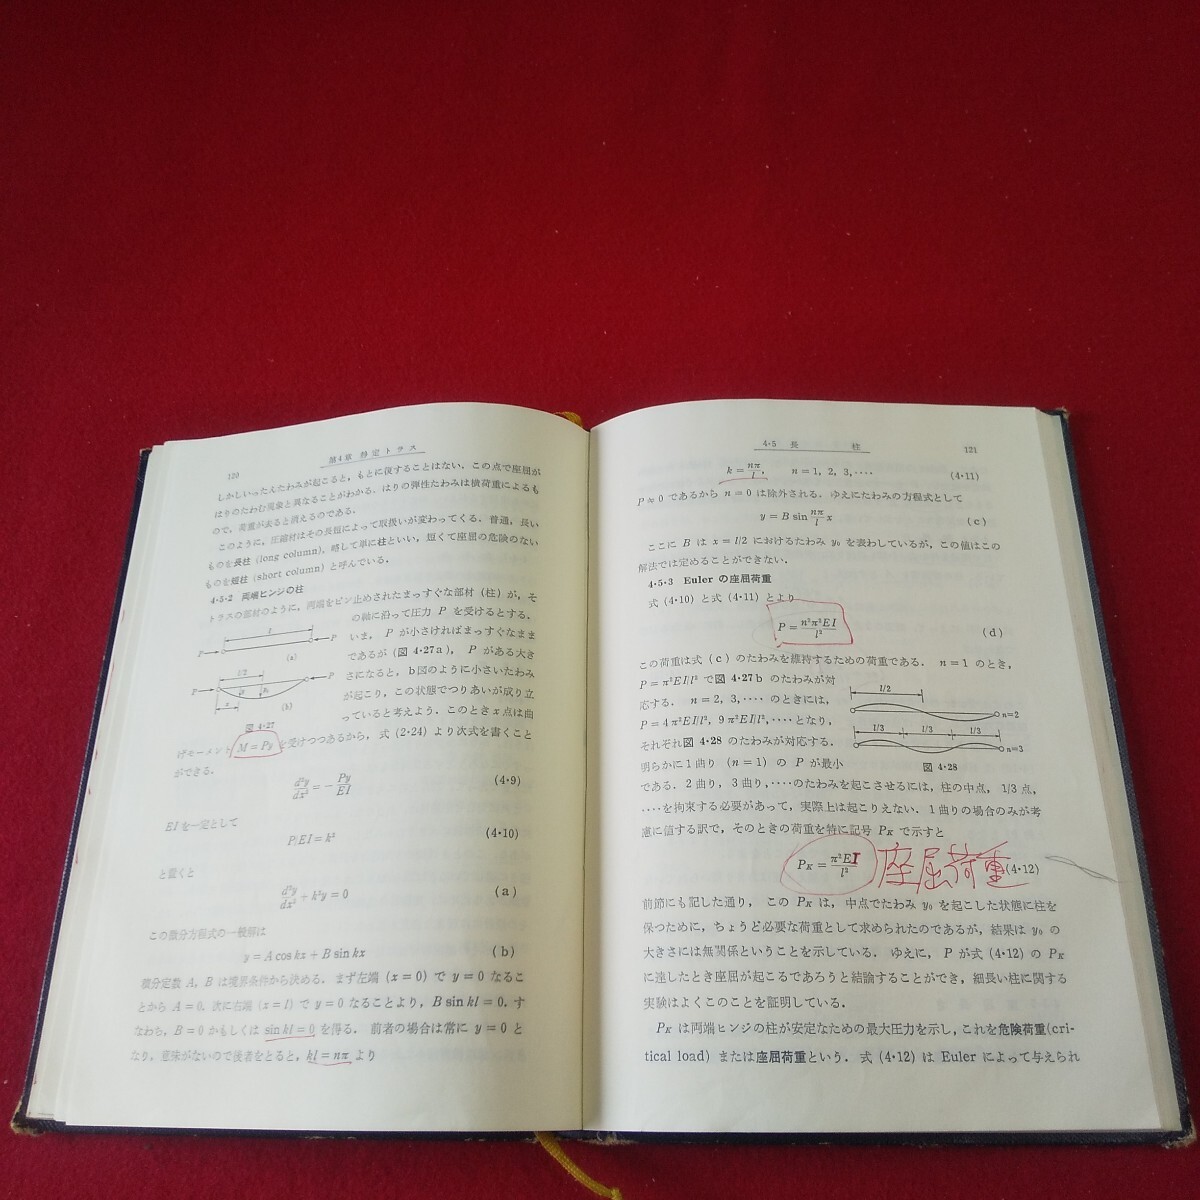 120
第4章 静定トラス
しかしいったんたわみが起こると，もとに復することはない．この点で座屈が
はりのたわむ現象と異なることがわかる．はりの弾性たわみは横荷重によるも
ので，荷重が去ると消えるのである．
このように，圧縮材はその長短によって取扱いが変わってくる．普通，長い
ものを長柱 (long column)，略して単に柱といい，短くて座屈の危険のない
ものを短柱 (short column) と呼んでいる．
4・5・2 両端ヒンジの柱
トラスの部材のように，両端をピン止めされたまっすぐな部材（柱）が，そ
の軸に沿って圧力 P を受けるとする．
いま， P が小さければまっすぐなまま
であるが（図 4・27a）， P がある大き
さになると，b図のように小さいたわみ
が起こり，この状態でつりあいが成り立
っていると考えよう．このとき x 点は曲
P l P
(a)
P l/2 P
x y y₀
(b)
図 4・27
げモーメント M = Py を受けつつあるから，式 (2・24) より次式を書くこと
ができる．
d²y/dx² = − Py/EI (4・9)
EI を一定として
P/EI = k² (4・10)
と置くと
d²y/dx² + k²y = 0 (a)
この微分方程式の一般解は
y = A cos kx + B sin kx (b)
積分定数 A，B は境界条件から決める．まず左端 (x = 0) で y = 0 なるこ
とから A = 0．次に右端 (x = l) で y = 0 なることより，B sin kl = 0．す
なわち，B = 0 かもしくは sin kl = 0 を得る． 前者の場合は常に y = 0 と
なり，意味がないので後者をとると，kl = nπ より
4・5 長 柱
121
k = nπ/l， n = 1, 2, 3,‥‥ (4・11)
P ≒ 0 であるから n = 0 は除外される．ゆえにたわみの方程式として
y = B sin nπ/l x (c)
ここに B は x = l/2 におけるたわみ y₀ を表わしているが，この値はこの
解法では定めることができない．
4・5・3 Euler の座屈荷重
式 (4・10) と式 (4・11) とより
P = n²π²EI/l² (d)
この荷重は式 (c) のたわみを維持するための荷重である． n = 1 のとき，
P = π²EI/l² で図 4・27b のたわみが対
応する． n = 2, 3,‥‥ のときには，
P = 4π²EI/l², 9π²EI/l²,‥‥となり，
それぞれ図 4・28 のたわみが対応する．
明らかに 1 曲り (n = 1) の P が最小
l/2
n=2
l/3 l/3 l/3
n=3
図 4・28
である．2 曲り，3 曲り，‥‥のたわみを起こさせるには，柱の中点，1/3 点，
‥‥を拘束する必要があって，実際上は起こりえない．1 曲りの場合のみが考
慮に値する訳で，そのときの荷重を特に記号 Pᴋ で示すと
Pᴋ = π²EI/l² 座屈荷重 (4・12)
前節にも記した通り， この Pᴋ は，中点でたわみ y₀ を起こした状態に柱を
保つために，ちょうど必要な荷重として求められたのであるが，結果は y₀ の
大きさには無関係ということを示している．ゆえに， P が式 (4・12) の Pᴋ
に達したとき座屈が起こるであろうと結論することができ，細長い柱に関する
実験はよくこのことを証明している．
Pᴋ は両端ヒンジの柱が安定なための最大圧力を示し，これを危険荷重(cri-
tical load) または座屈荷重という． 式 (4・12) は Euler によって与えられ